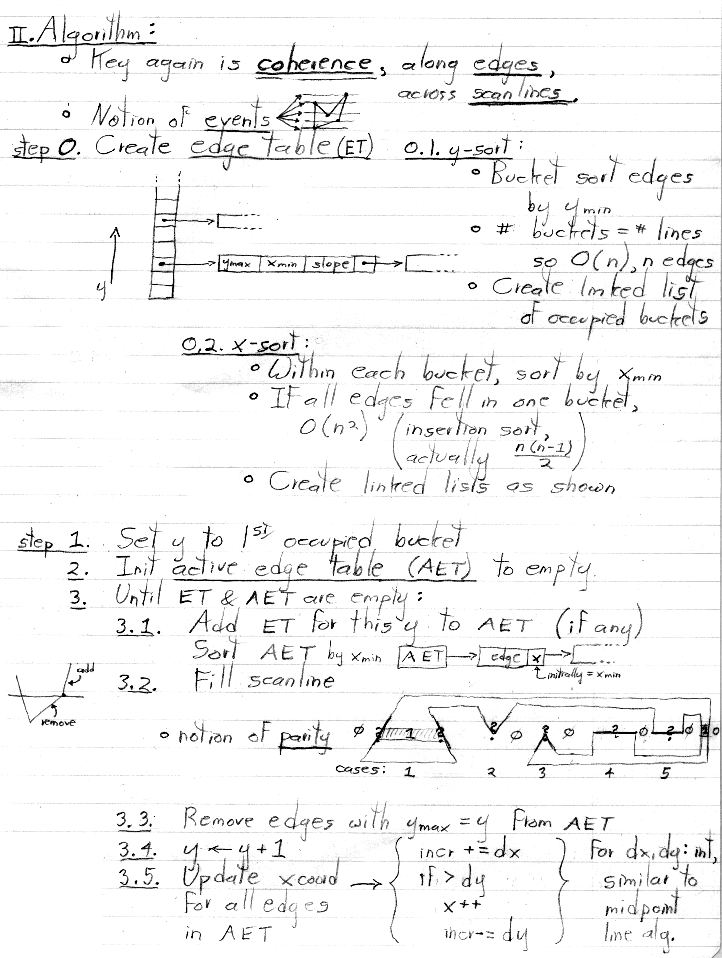 II. Algorithm:
o Key again is coherence, along edges,
across scanlines.
o Notion of events
step 0. Create edge table (ET) 0.1. y-sort:
o Bucket sort edges
by ymin
o # buckets = # lines
so O(n), n edges
ymax xmin slope
y
o Create linked list
of occupied buckets
0.2. x-sort:
o Within each bucket, sort by xmin
o If all edges fell in one bucket,
O(n²) (insertion sort,
actually n(n-1)/2)
o Create linked lists as shown
step 1. Set y to 1st occupied bucket
2. Init active edge table (AET) to empty.
3. Until ET & AET are empty:
3.1. Add ET for this y to AET (if any)
Sort AET by xmin AET edge x
initially = xmin
add
remove
3.2. Fill scanline
o notion of parity ∅ 2 1 2 2 ∅ 2 ∅ 2 ∅ 2 ∅ 1 0
cases: 1 2 3 4 5
3.3. Remove edges with ymax = y from AET
3.4. y ← y + 1
3.5. Update x coord →
for all edges
in AET
incr += dx
if > dy
x++
incr -= dy
For dx, dy: int,
similar to
midpoint
line alg.